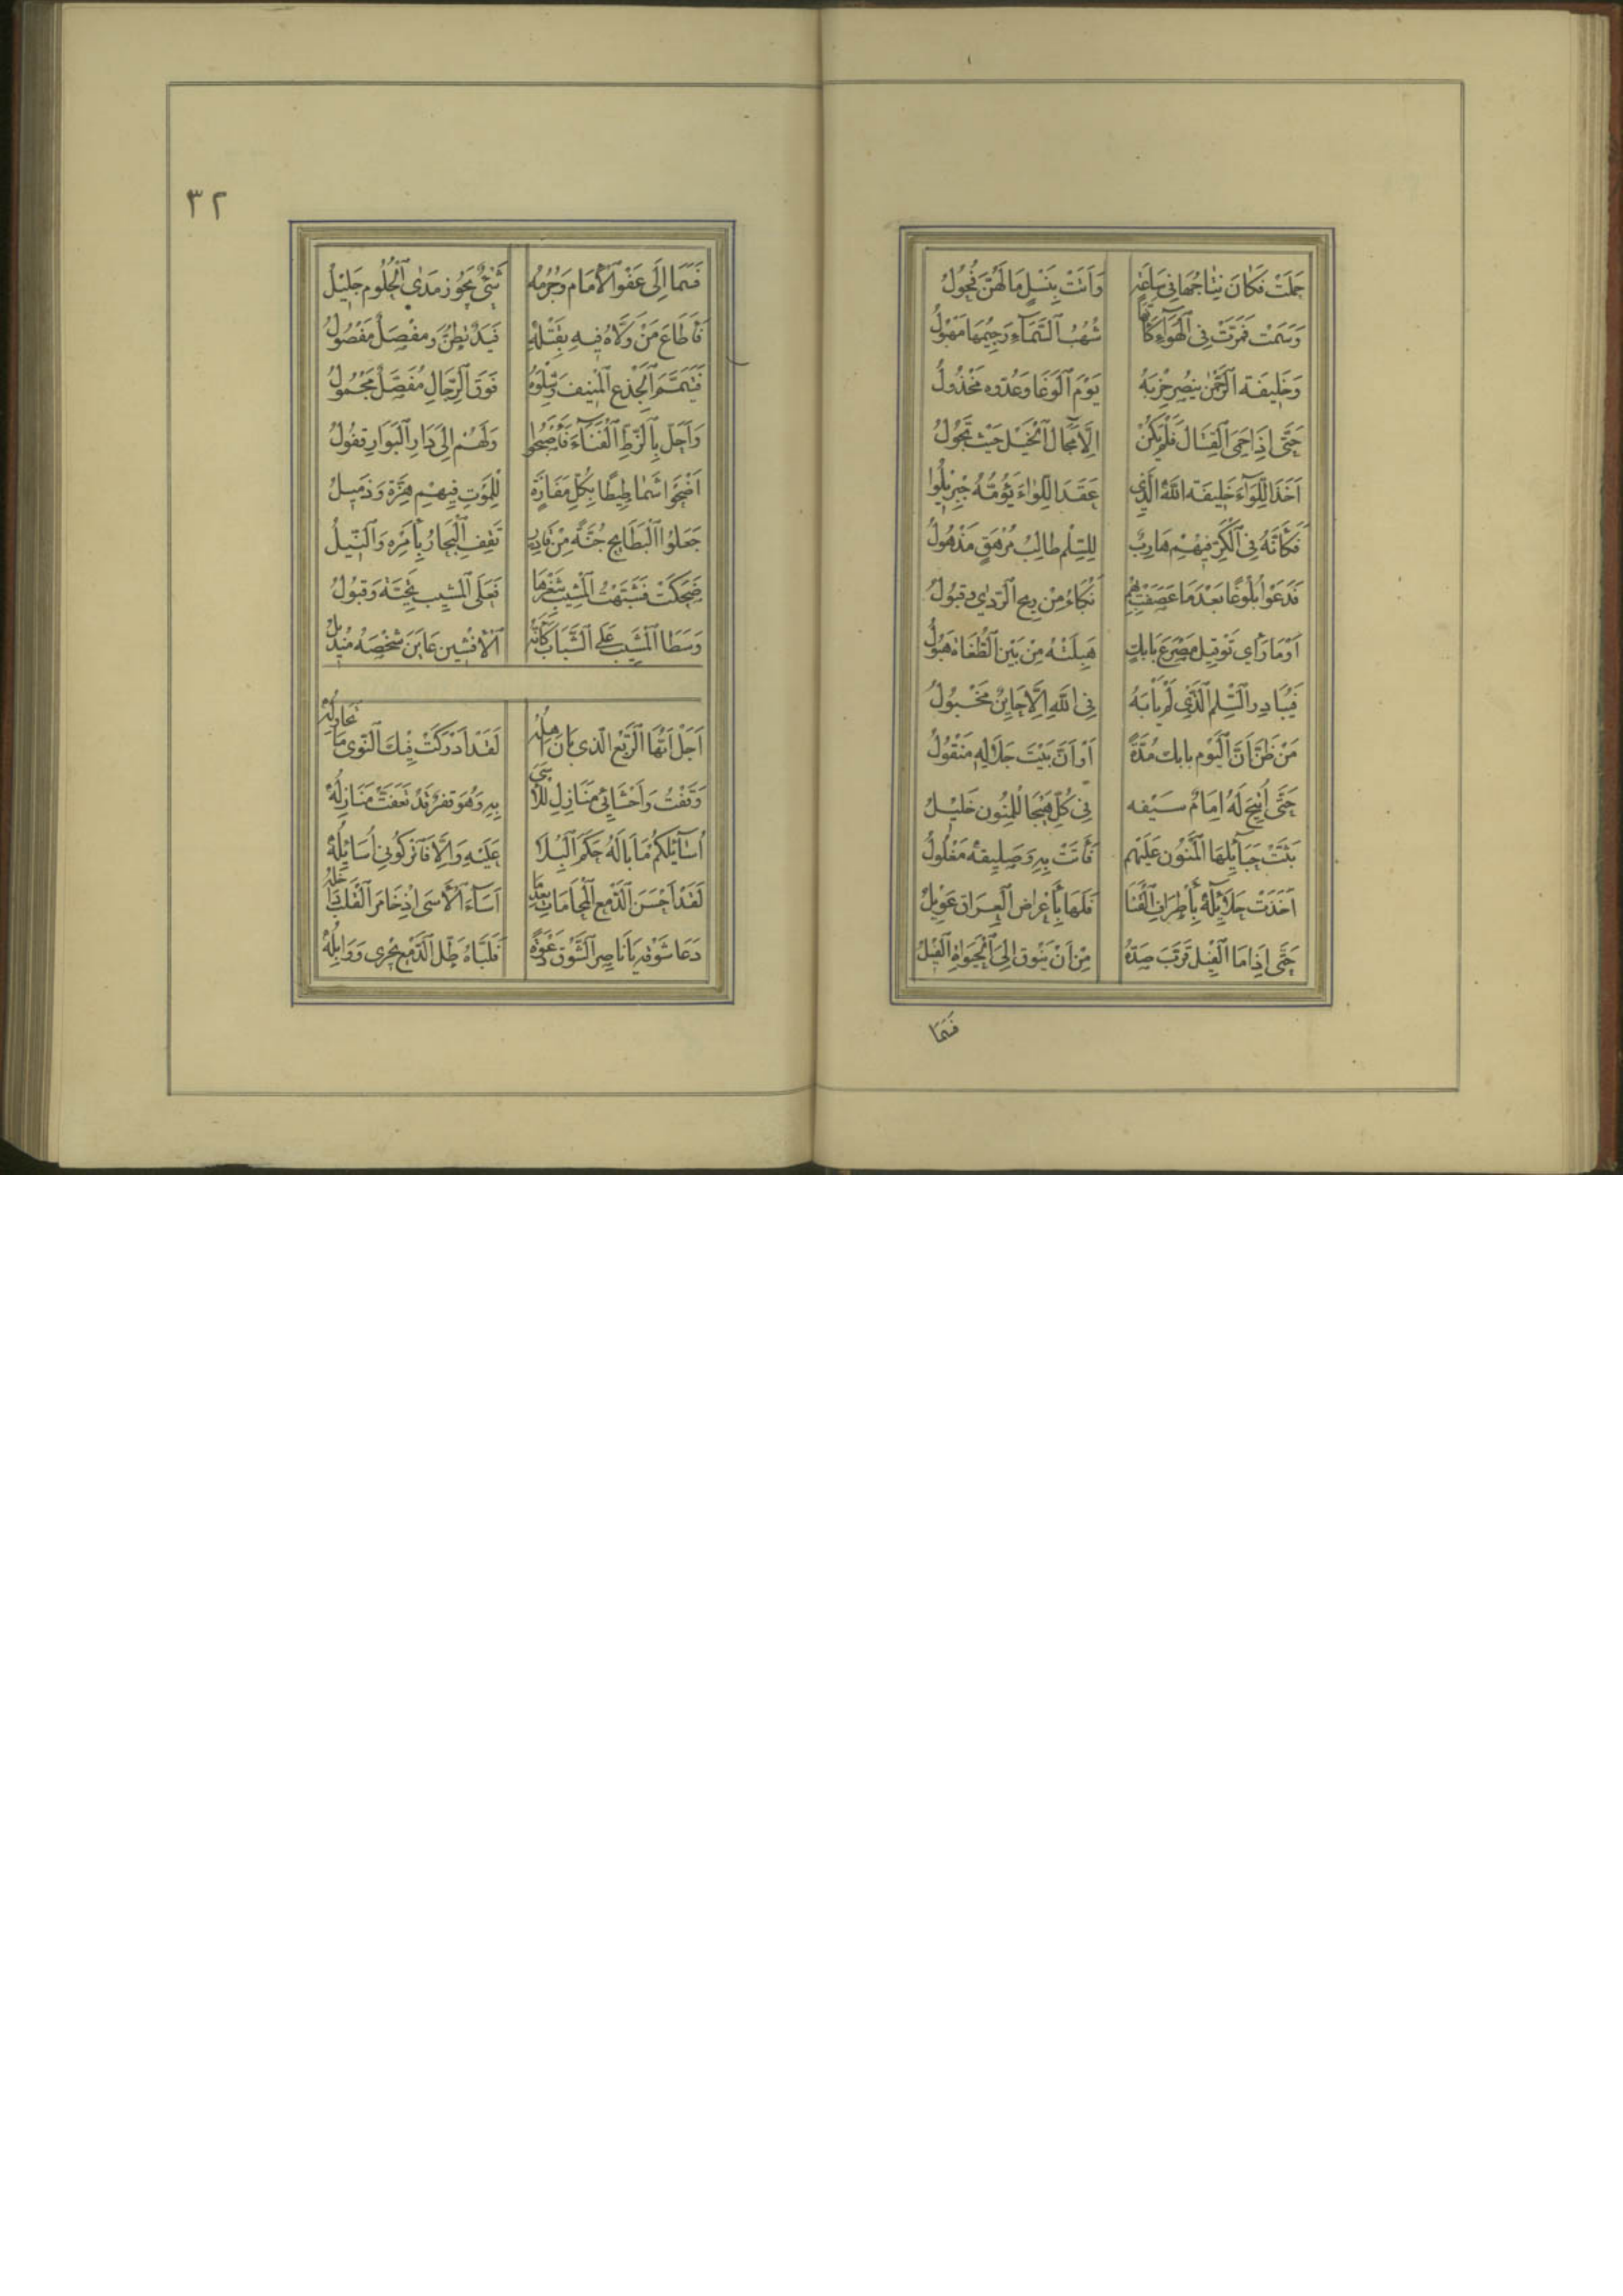 حَمَلَتْ فَكَانَ نِتَاجُهَا فِي سَاعَةٍ وَأَتَتْ بِنَسْلٍ مَا لَهُنَّ فُحُولُ
وَسَمَتْ فَمَرَّتْ فِي الْهَوَاءِ كَأَنَّهَا شُهُبُ السَّمَاءِ رَجِيْمُهَا مَهْوُلُ
وَخَلِيفَةُ الرَّحْمٰنِ يَنْصُرُ حِزْبَهُ يَوْمَ الْوَغَا وَعَدُوُّه مَخْذُولُ
حَتَّى إِذَا حَمِيَ الْقِتَالُ فَلَمْ يَكُنْ إِلَّا مَجَالَ الْخَيْلِ حَيْثُ تَجُولُ
أَخَذَ اللِّوَاءَ خَلِيفَةُ اللهِ الَّذِي عَقَدَ اللِّوَاءَ يَؤُمُّهُ جِبْرِيلُوا
فَكَأَنَّهُ فِي الْكَرِّ فِيهِمْ هَارِبٌ لِلسِّلْمِ طَالِبُ مُرْهَقٍ مَذْهُولُ
فَدَعَوْا بُلُوغًا بَعْدَمَا عَصَفَتْ بِهِمْ نَكْبَاءُ مِنْ رِيحِ الرَّدٰى وَقَبُولُ
أَوَمَا رَأى تَوْفِيل مَصْرَعَ بَابَكٍ هَبِلَتْهُ مِنْ بَيْنِ الطُّغَاةِ هَبُولُ
فَيُبَادِرِ السِّلْمَ الَّذِي لَمْ يَأْبَهُ فِي اللهِ إِلَّا حَايِنٌ مَخْبُولُ
مَنْ ظَنَّ أَنَّ الْيَوْمَ بابك مُدَّةً أَوْ أَنَّ بَيْتَ جَلَالِهِ مَنْقُولُ
حَتَّى أُتِيحَ لَهُ إِمَامٌ سَيْفُه فِي كُلِّ هَيْجَا لِلْمَنُونِ خَلِيلُ
بَثَّتْ حَبَآئِلَهَا الْمَنُونُ عَلَيْهِم فَأَتَتْ بِهِ وَصَلِيبُهُ مَغْلُولُ
أَخَذَتْ حَلَائِلُهُ بِأَطْرَافِ الْقَنَا فَلَهَا بِأَعْرَاضِ الْعِرَاقِ عَوِيلُ
حَتَّى إِذَا مَا الْفِيلُ قَرَّبَ مِنْ أَنْ يَنُوقَ إِلَى الْفِيلُ
فَسَمَا
٣٢
فَسَمَا إِلَى عَفْوِ الْإِمَامِ وَجُرْمُهُ شَيْءٌ يَجُوزُ مَدَى الْحُلُومِ جَلِيْلُ
فَأَطَاعَ مَنْ وَلَّاهُ فِيهِ بِقَتْلِهِ فَيَدٌ تَطِنُّ وَمَفْصِلٌ مَفْصُولُ
فَتَسَنَّمَ الْجِذْعَ الْمُنِيفَ وَشِلْوُهُ فَوْقَ الرِّجَالِ مُفَصَّلٌ مَحْمُولُ
وَأَحَلَّ بِالزُّطِّ الْفَنَاءَ فَأَصْبَحُوا وَلَهُمْ إِلَى دَارِ الْبَوَارِ قُفُولُ
أَضْحَوْا شَمَاطِيطًا بِكُلِّ مَفَازَةٍ لِلْمَوْتِ فِيهِمْ هِزَّة وَذَمِيلُ
جَعَلُوا الْبَطَائِحَ جُنَّةً مِنْ قَادِرٍ تَقِفُ الْبِحَارُ بِأَمْرِهِ وَالنِّيلُ
ضَحِكَتْ فَشَبَّهْتُ الْمَشِيبَ بِثَغْرِهَا فَعَلَى الْمَشِيبِ تَحِيَّةٌ وَقَبُولُ
وَسَطَا الْمَشِيبُ عَلَى الشَّبَابِ كَأَنَّهُ الْأَفْشِينُ عَايَنَ شَخْصَهُ مَنْدِيلُ
أَجَلْ أَيُّهَا الرَّبْعُ الَّذِي بَانَ آهِلُهْ لَقَدْ أَدْرَكَتْ فِيكَ النَّوَى مَا تُحَاوِلُهْ
وَقَفْتُ وَأَحْشَائِي مَنَازِلُ لِلْأَسَى بِهِ وَهُوَ قَفْرٌ قَدْ تَعَفَّتْ مَنَازِلُهْ
أُسَائِلُكُمْ مَا بَالُهُ حَكَمَ الْبِلَا عَلَيْهِ وَإِلَّا فَاتْرُكُونِي أُسَائِلُهْ
لَقَدْ أَحْسَنَ الدَّمْعُ الْمُحَامَاةَ بَعْدَ مَا أَسَآءَ الْأَسَى إِذْ خَامَرَ الْقَلْبَ دَاخِلُهْ
دَعَا شَوْقُهُ يَا نَاصِرَ الشَّوْقِ دَعْوَةً فَلَبَّاهُ طَلُّ الدَّمْعِ يَجْرِي وَوَابِلُهْ